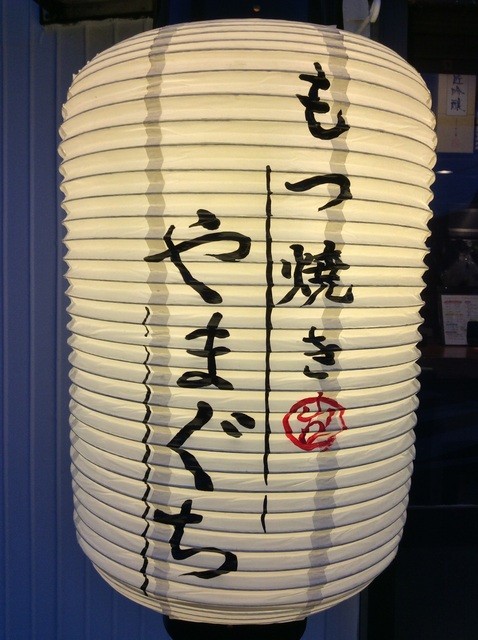 もつ焼き
やまぐち